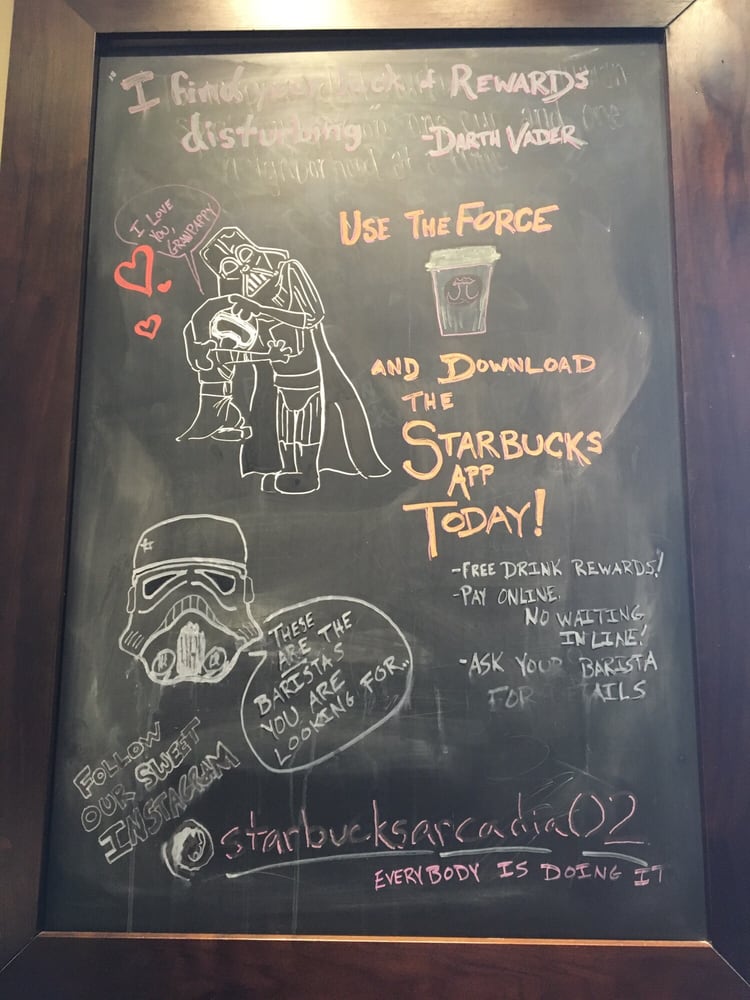 "I find your lack of REWARDS
disturbing" -DARTH VADER
I LOVE
YOU,
GRANPAPPY
USE THE FORCE
AND DOWNLOAD
THE
STARBUCKS
APP
TODAY!
-FREE DRINK REWARDS!
-PAY ONLINE.
NO WAITING
IN LINE!
-ASK YOUR BARISTA
FOR
THESE
ARE THE
BARISTAS
YOU ARE
LOOKING FOR..
FOLLOW
OUR SWEET
INSTAGRAM
@starbucksarcadia02
EVERYBODY IS DOING IT